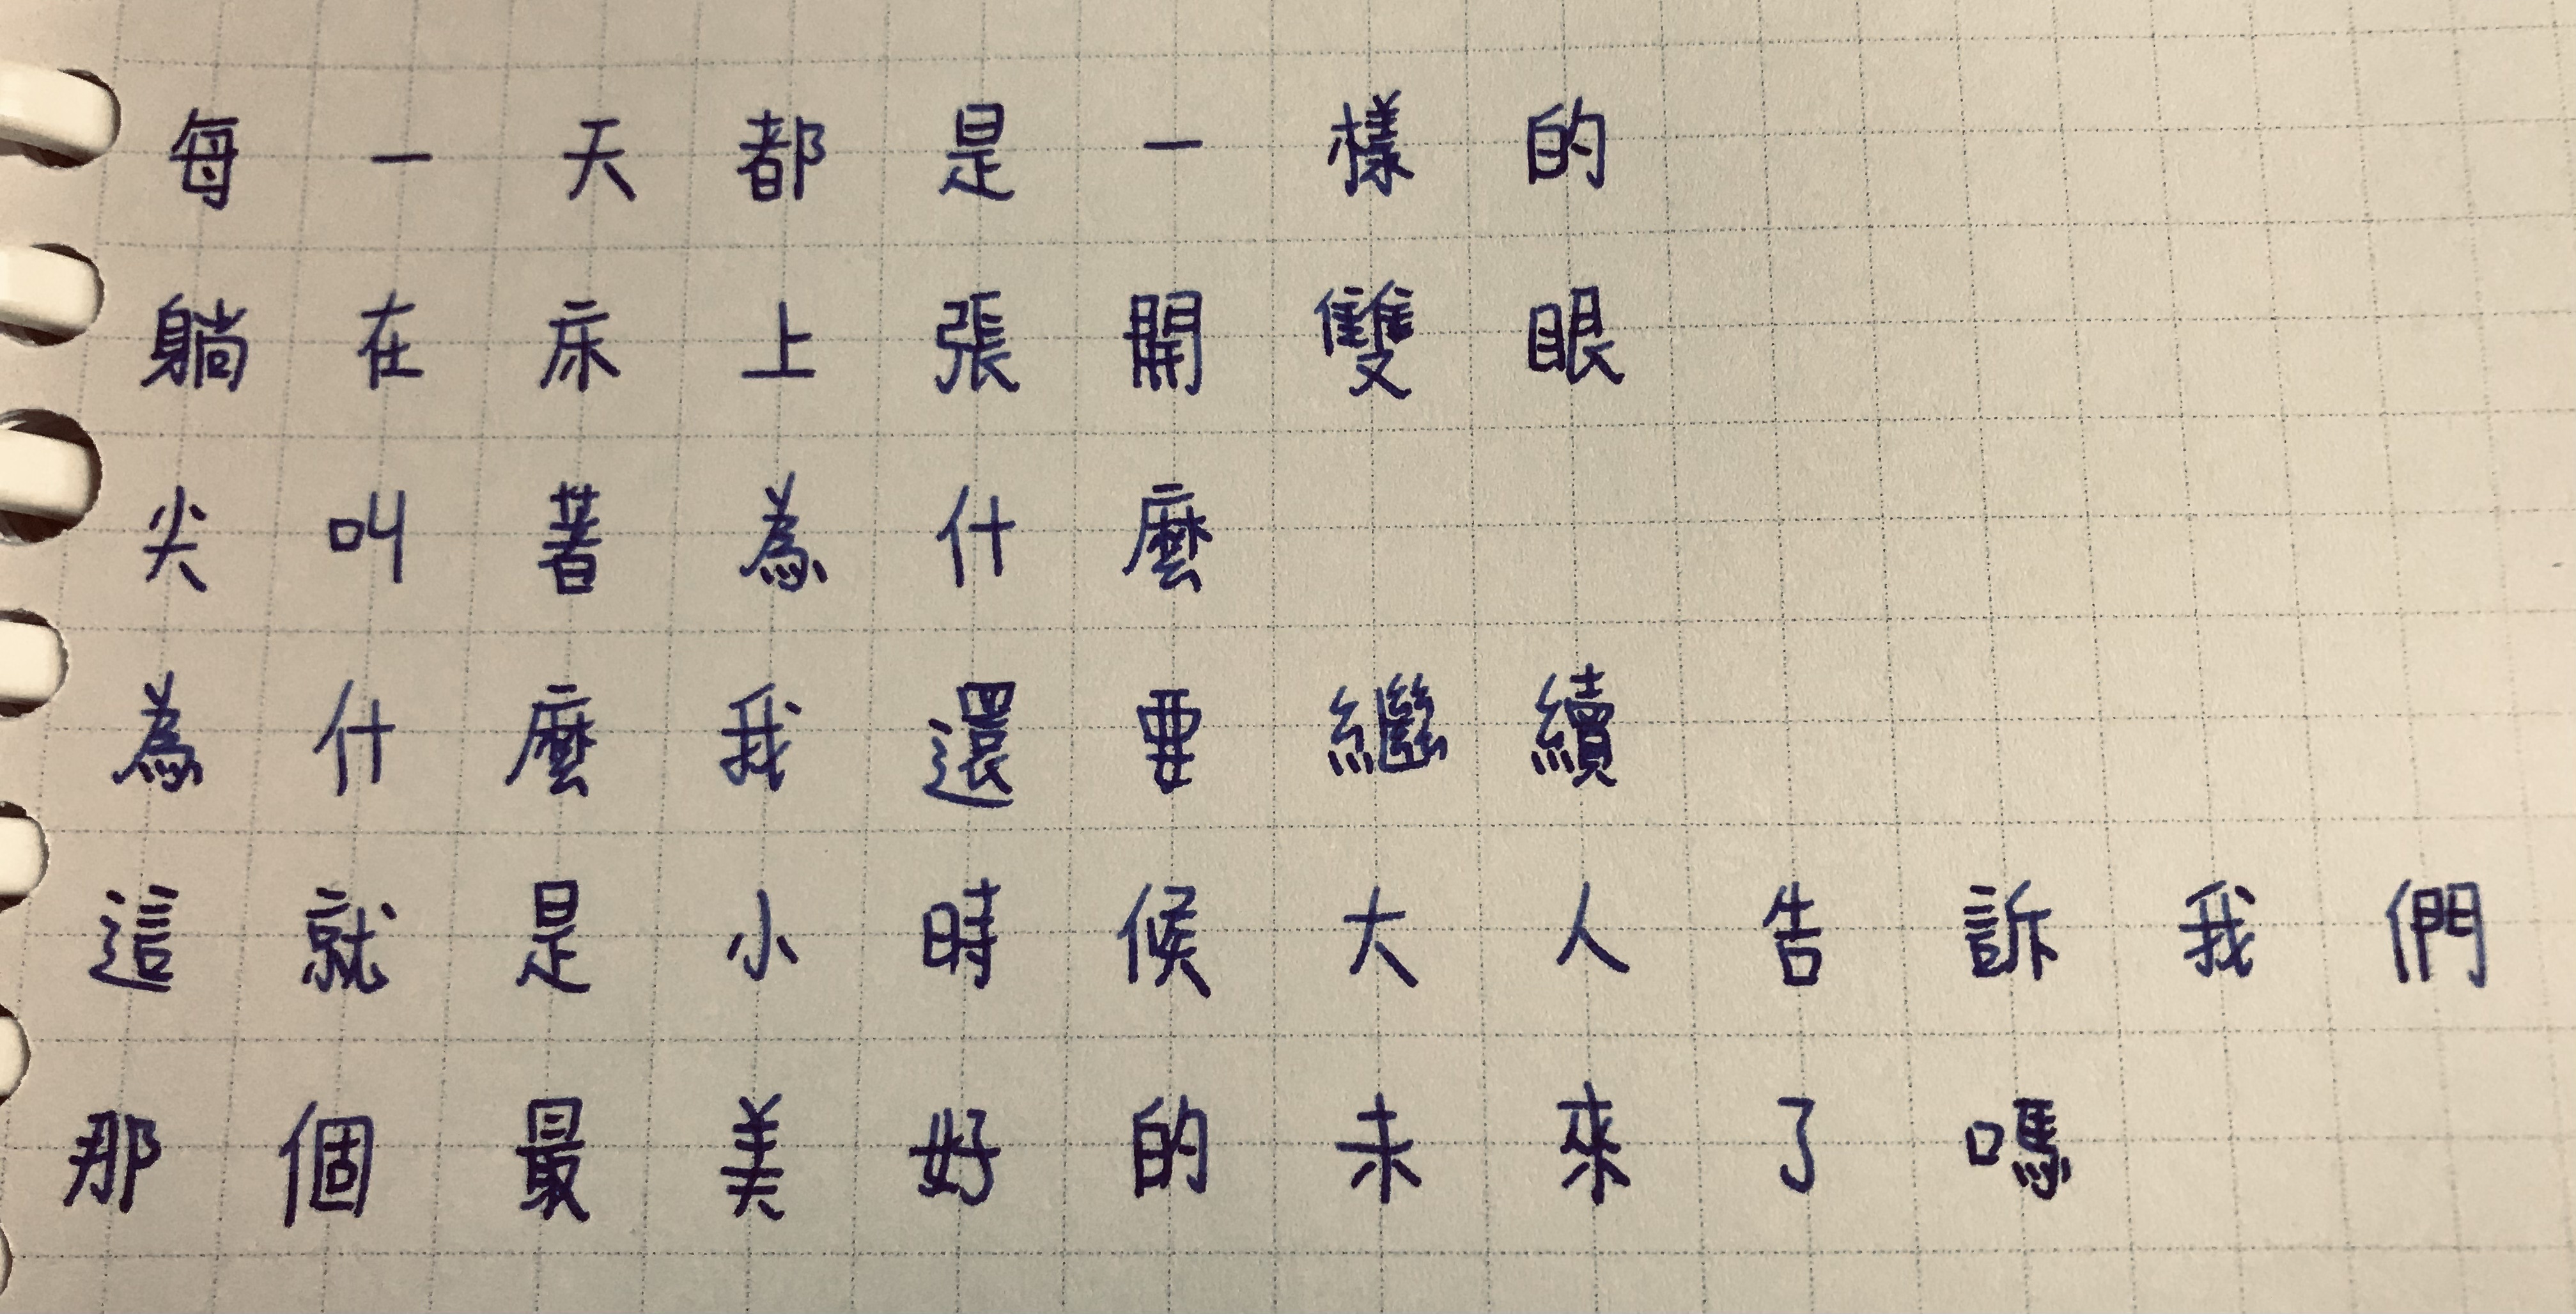 每一天都是一樣的
躺在床上張開雙眼
尖叫著為什麼
為什麼我還要繼續
這就是小時候大人告訴我們
那個最美好的未來了嗎